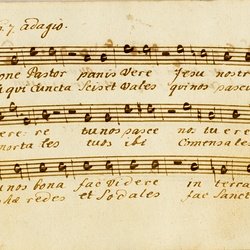 7. adagio.
one Pastor panis Vere Jesu nostr
qui cuncta Scis et Vales qui nos pasci
ere: re tu nos pasce nos tuere
mortales tuos ibi Comensales
nos bona fac Videre in terra
redes et Sodales fac Sanct